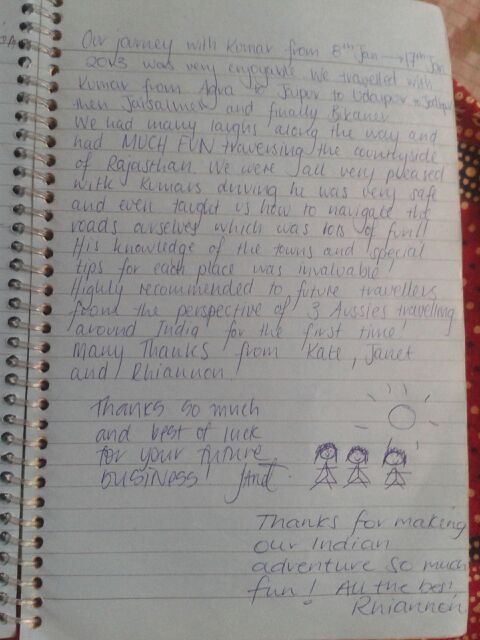 Our journey with Kumar from 8th Jan → 17th Jan
2013 was very enjoyable. We travelled with
Kumar from Agra to Jaipur to Udaipur to Jodhpur
then Jaisalmer and finally Bikaner
We had many laughs along the way and
had MUCH FUN traversing the countryside
of Rajasthan. We were all very pleased
with Kumars driving he was very safe
and even taught us how to navigate the
roads ourselves which was lots of fun!!
His knowledge of the towns and special
tips for each place was invaluable!
Highly recommended to future travellers
from the perspective of 3 Aussies travelling
around India for the first time!
Many Thanks from Kate, Janet
and Rhiannon!
Thanks so much
and best of luck
for your future
business!
Thanks for making
our Indian
adventure so much
fun! All the best
Rhiannon